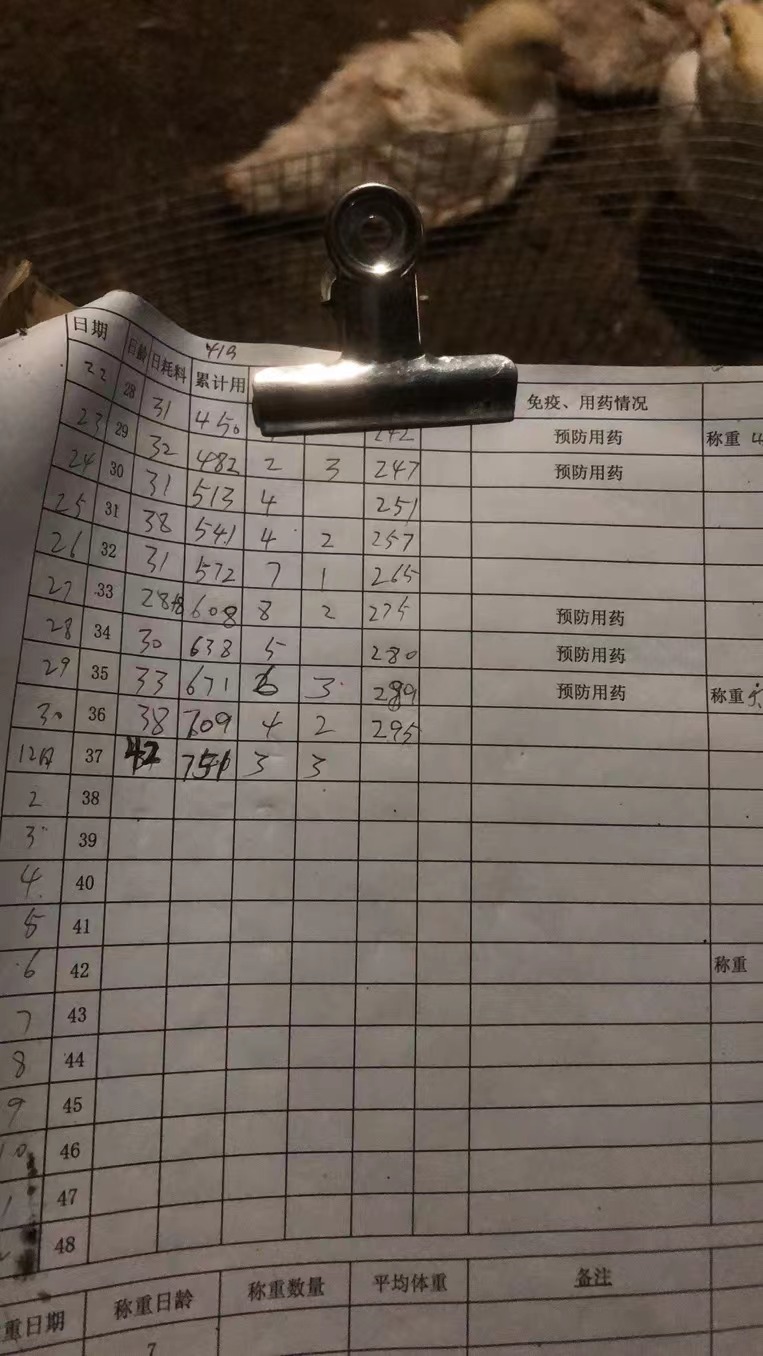 419
日期 日龄 日耗料 累计用 免疫、用药情况
22 28 31 450 242 预防用药 称重 4
23 29 32 482 2 3 247 预防用药
24 30 31 513 4 251
25 31 38 541 4 2 257
26 32 31 572 7 1 265
27 33 28+8 608 8 2 275 预防用药
28 34 30 638 5 280 预防用药
29 35 33 671 6 3 289 预防用药 称重
30 36 38 709 4 2 295
12月 37 42 751 3 3
2 38
3 39
4 40
5 41
6 42 称重
7 43
8 44
9 45
10 46
1 47
48
重日期 称重日龄 称重数量 平均体重 备注
7